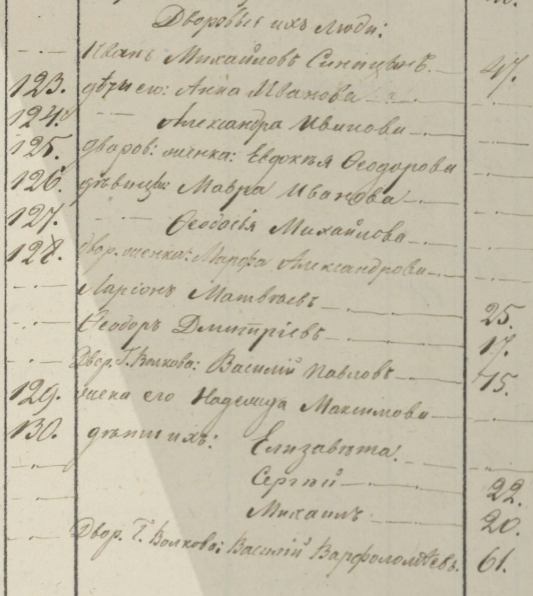 Дворовые ихъ люди:
Иванъ Михайловъ Синицынъ. 47.
123. дѣти его: Анна Иванова
124. Александра Иванова
125. дворов: женка: Евдокѣя Ѳеодорова
126. дѣвицы: Мавра Иванова
127. Ѳеодосія Михайлова
128. двор. женка: Марфа Александрова
Ларіонъ Матвѣевъ 25.
Ѳеодоръ Дмитріевъ 17.
Двор. Г. Волкова: Василій Павловъ
129. жена его Надежда Максимова
130. дѣти ихъ: Елизавѣта.
Сергій 22.
Михаилъ 20.
Двор. Г. Волкова: Василій Варфоломѣевъ. 61.